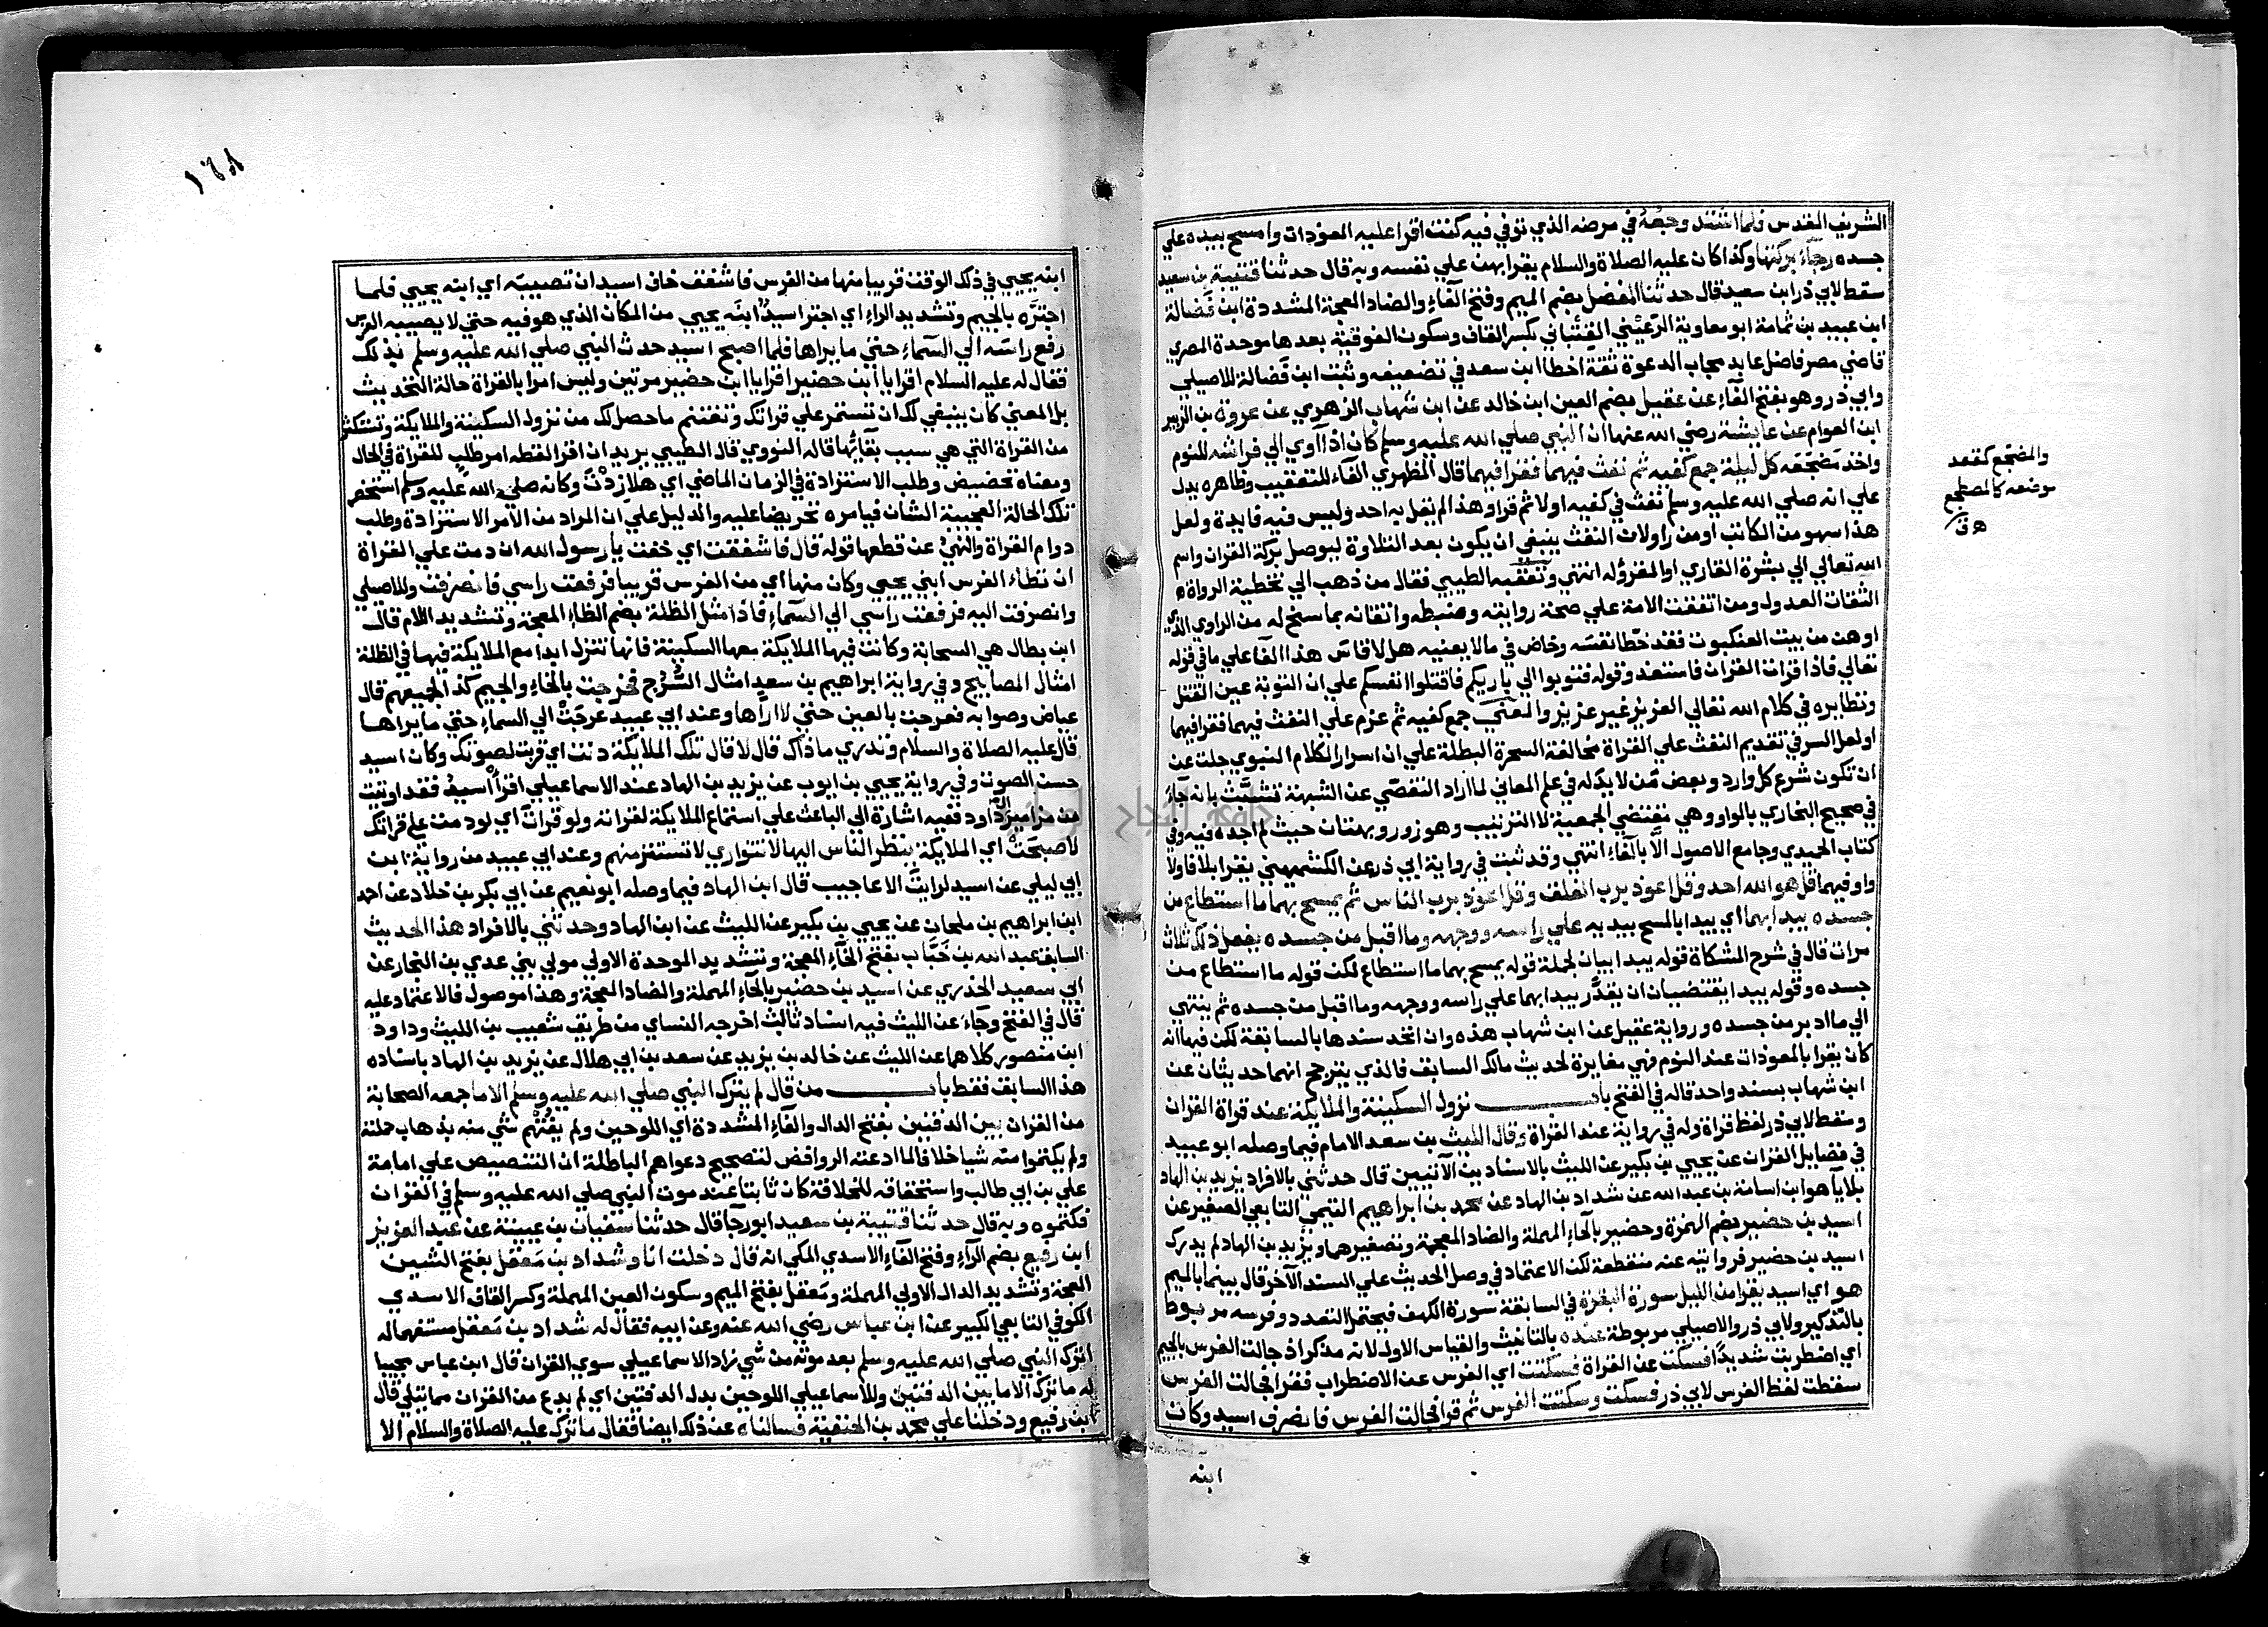 الشريف المقدس فلما اشتد وجعه في مرضه الذي توفي فيه كنت اقرا عليه المعوذات وامسح بيده علي
جسده رجاء بركتها وكذا كان عليه الصلاة والسلام يقرا بهن علي نفسه وبه قال حدثنا قتيبة بن سعيد
سقط لابي ذر ابن سعيد قال حدثنا المفضل بضم الميم وفتح الفاء والضاد المعجمة المشددة ابن فضالة
ابن عبيد بن ثمامة ابو معاوية الرعيني القتباني بكسر القاف وسكون الفوقية بعدها موحدة المصري
قاضي مصر فاضل عابد مجاب الدعوة ثقة اخطا ابن سعد في تضعيفه وثبت ابن فضالة للاصيلي
وابي ذر وهو بفتح الفاء عن عقيل بضم العين ابن خالد عن ابن شهاب الزهري عن عروة بن الزبير
ابن العوام عن عايشة رضي الله عنها ان النبي صلي الله عليه وسلم كان اذا آوي الي فراشه للنوم
واخذ مضجعه كل ليلة جمع كفيه ثم نفث فيهما فقرا فيهما قال المظهري الفاء للتعقيب وظاهره يدل
علي انه صلي الله عليه وسلم نفث في كفيه اولا ثم قرا وهذا لم يقل به احد وليس فيه فايدة ولعل
هذا سهو من الكاتب او من راو لان النفث ينبغي ان يكون بعد التلاوة ليوصل بركة القران واسم
الله تعالي الي بشرة القاري او المقرؤ له انتهي وتعقبه الطيبي فقال من ذهب الي تخطية الرواة
الثقات العدول ومن اتفقت الامة علي صحة روايته وضبطه واتقانه بما سنح له من الراوي الذي
اوهن من بيت العنكبوت فقد خطا نفسه وخاض في ما لا يعنيه هلا قاس هذا الفاء علي ما في قوله
تعالي فاذا قرات القران فاستعذ وقوله فتوبوا الي باريكم فاقتلوا انفسكم علي ان التوبة عين القتل
ونظايره في كلام الله تعالي العزيز غير عزيز والمعني جمع كفيه ثم عزم علي النفث فيهما فقرا فيهما
او لعل السر في تقديم النفث علي القراة مخالفة السحرة البطلة علي ان اسرار الكلام النبوي جلت عن
ان تكون شرع كل وارد وبعض من لا يد له في علم المعاني لما اراد التفصي عن الشبهة تشبث بانه جاء
في صحيح البخاري بالواو وهي تقتضي الجمعية لا الترتيب وهو زور وبهتان حيث لم اجده فيه وفي
كتاب الحميدي وجامع الاصول الا بالفاء انتهي وقد ثبت في رواية ابي ذر عن الكشميهني يقرا بلا فا ولا
واو فيهما قل هو الله احد وقل اعوذ برب الفلق وقل اعوذ برب الناس ثم يمسح بهما ما استطاع من
جسده يبدا بهما اي يبدا بالمسح بيديه علي راسه ووجهه وما اقبل من جسده يفعل ذلك ثلاث
مرات قال في شرح المشكاة قوله يبدا بيان لجملة قوله يمسح بهما ما استطاع لكن قوله ما استطاع من
جسده وقوله يبدا يقتضيان ان يقدر يبدا بهما علي راسه ووجهه وما اقبل من جسده ثم ينتهي
الي ما ادبر من جسده ورواية عقيل عن ابن شهاب هذه وان اتحد سندها بالسابقة لكن فيها انه
كان يقرا بالمعوذات عند النوم فهي مغايرة لحديث مالك السابق فالذي يترجح انهما حديثان عن
ابن شهاب بسند واحد قاله في الفتح باب نزول السكينة والملايكة عند قراة القران
وسقط لابي ذر لفظ قراة وله في رواية عند القراة وقال الليث بن سعد الامام فيما وصله ابو عبيد
في فضايل القران عن يحيي بن بكير عن الليث بالاسنادين الآتيين قال حدثني بالافراد يزيد بن الهاد
بلا ياء هو ابن اسامة بن عبد الله عن شداد بن الهاد عن محمد بن ابراهيم التيمي التابعي الصغير عن
اسيد بن حضير بضم الهمزة وحضير بالحاء المهملة والضاد المعجمة وتصغيرهما ويزيد بن الهاد لم يدرك
اسيد بن حضير فروايته عنه منقطعة لكن الاعتماد في وصل الحديث علي السند الآخر قال بينما بالميم
هو اي اسيد يقرا من الليل سورة البقرة في السابقة سورة الكهف فيحتمل التعدد وفرسه مربوط
بالتذكير ولابي ذر والاصيلي مربوطة عنده بالتانيث والقياس الاول لانه مذكر اذ جالت الفرس بالجيم
اي اضطربت شديدا فسكت عن القراة فسكنت اي الفرس عن الاضطراب فقرا فجالت الفرس
سقطت لفظ الفرس لابي ذر فسكت وسكنت الفرس ثم قرا فجالت الفرس فانصرف اسيد وكان
ابنه
والمضجع كمقعد
موضعه كالمضطجع
ه ق
١٦٨
ابنه يحيي في ذلك الوقت قريبا منها من الفرس فاشفق خاف اسيد ان تصيبه اي ابنه يحيي فلما
اجتره بالجيم وتشديد الراء اي اجتر اسيد ابنه يحيي من المكان الذي هو فيه حتي لا يصيبه الفرس
رفع راسه الي السماء حتي ما يراها فلما اصبح اسيد حدث النبي صلي الله عليه وسلم بذلك
فقال له عليه السلام اقرا يا ابن حضير اقرا يا ابن حضير مرتين وليس امرا بالقراة حالة التحديث
بل المعني كان ينبغي لك ان تستمر علي قراتك وتغتنم ما حصل لك من نزول السكينة والملايكة وتستكثر
من القراة التي هي سبب بقايها قاله النووي قال الطيبي يريد ان اقرا لفظه امر طلب للقراة في الحال
ومعناه تحضيض وطلب الاستزادة في الزمان الماضي اي هلا زدت وكانه صلي الله عليه وسلم استحضر
تلك الحالة العجيبة الشان فيامره تحريضا عليه والدليل علي ان المراد من الامر الاستزادة وطلب
دوام القراة والنهي عن قطعها قوله قال فاشفقت اي خفت يا رسول الله ان دمت علي القراة
ان تطاء الفرس ابني يحيي وكان منها اي من الفرس قريبا فرفعت راسي فانصرفت وللاصيلي
وانصرفت اليه فرفعت راسي الي السماء فاذا مثل الظلة بضم الظاء المعجمة وتشديد اللام قال
ابن بطال هي السحابة وكانت فيها الملايكة معها السكينة فانها تتنزل ابدا مع الملايكة فيها في الظلة
امثال المصابيح وفي رواية ابراهيم بن سعد امثال السرج فخرجت بالخاء والجيم كذا لجميعهم قال
عياض وصوابه فعرجت بالعين حتي لا اراها وعند ابي عبيد عرجت الي السماء حتي ما يراها
قال عليه الصلاة والسلام وتدري ما ذاك قال لا قال تلك الملايكة دنت اي قربت لصوتك وكان اسيد
حسن الصوت وفي رواية يحيي بن ايوب عن يزيد بن الهاد عند الاسماعيلي اقرأ اسيد فقد اوتيت
من مزامير آل داود ففيه اشارة الي الباعث علي استماع الملايكة لقراته ولو قرات اي لو دمت علي قراتك
لاصبحت اي الملايكة ينظر الناس اليها لا تتواري لا تستتر منهم وعند ابي عبيد من رواية ابن
ابي ليلي عن اسيد لرايت الاعاجيب قال ابن الهاد فيما وصله ابو نعيم عن ابي بكر بن خلاد عن احمد
ابن ابراهيم بن ملحان عن يحيي بن بكير عن الليث عن ابن الهاد وحدثني بالافراد هذا الحديث
السابق عبد الله بن خباب بفتح الخاء المعجمة وتشديد الموحدة الاولي مولي بني عدي بن النجار عن
ابي سعيد الخدري عن اسيد بن حضير بالحاء المهملة والضاد المعجمة وهذا موصول فالاعتماد عليه
قال في الفتح وجاء عن الليث فيه اسناد ثالث اخرجه النساي من طريق شعيب بن الليث وداود
ابن منصور كلاهما عن الليث عن خالد بن يزيد عن سعد بن ابي هلال عن يزيد بن الهاد باسناده
هذا السابق فقط باب من قال لم يترك النبي صلي الله عليه وسلم الا ما جمعه الصحابة
من القران بين الدفتين بفتح الدال والفاء المشددة اي اللوحين ولم يفتهم شي منه بذهاب حملته
ولم يكتموا منه شيا خلافا لما ادعته الروافض لتصحيح دعواهم الباطلة ان التنصيص علي امامة
علي بن ابي طالب واستحقاقه للخلافة كان ثابتا عند موت النبي صلي الله عليه وسلم في القران
فكتموه وبه قال حدثنا قتيبة بن سعيد ابو رجا قال حدثنا سفيان بن عيينة عن عبد العزيز
ابن رفيع بضم الراء وفتح الفاء الاسدي المكي انه قال دخلت انا وشداد بن معقل بفتح الشين
المعجمة وتشديد الدال الاولي المهملة ومعقل بفتح الميم وسكون العين المهملة وكسر القاف الاسدي
الكوفي التابعي الكبير عن ابن عباس رضي الله عنه وعن ابيه فقال له شداد بن معقل مستفهما له
اترك النبي صلي الله عليه وسلم بعد موته من شي زاد الاسماعيلي سوي القران قال ابن عباس مجيبا
له ما ترك الا ما بين الدفتين وللاسماعيلي اللوحين بدل الدفتين اي لم يدع من القران مما يتلي قال
ابن رفيع ودخلنا علي محمد بن الحنفية فسالناه عن ذلك ايضا فقال ما ترك عليه الصلاة والسلام الا